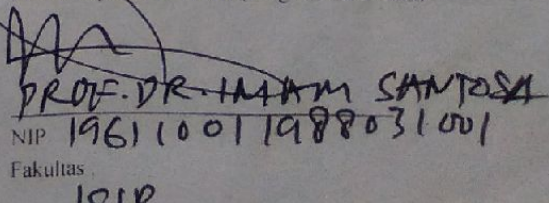 PROF. DR. IMAM SANTOSA
NIP 196110011988031001
Fakultas